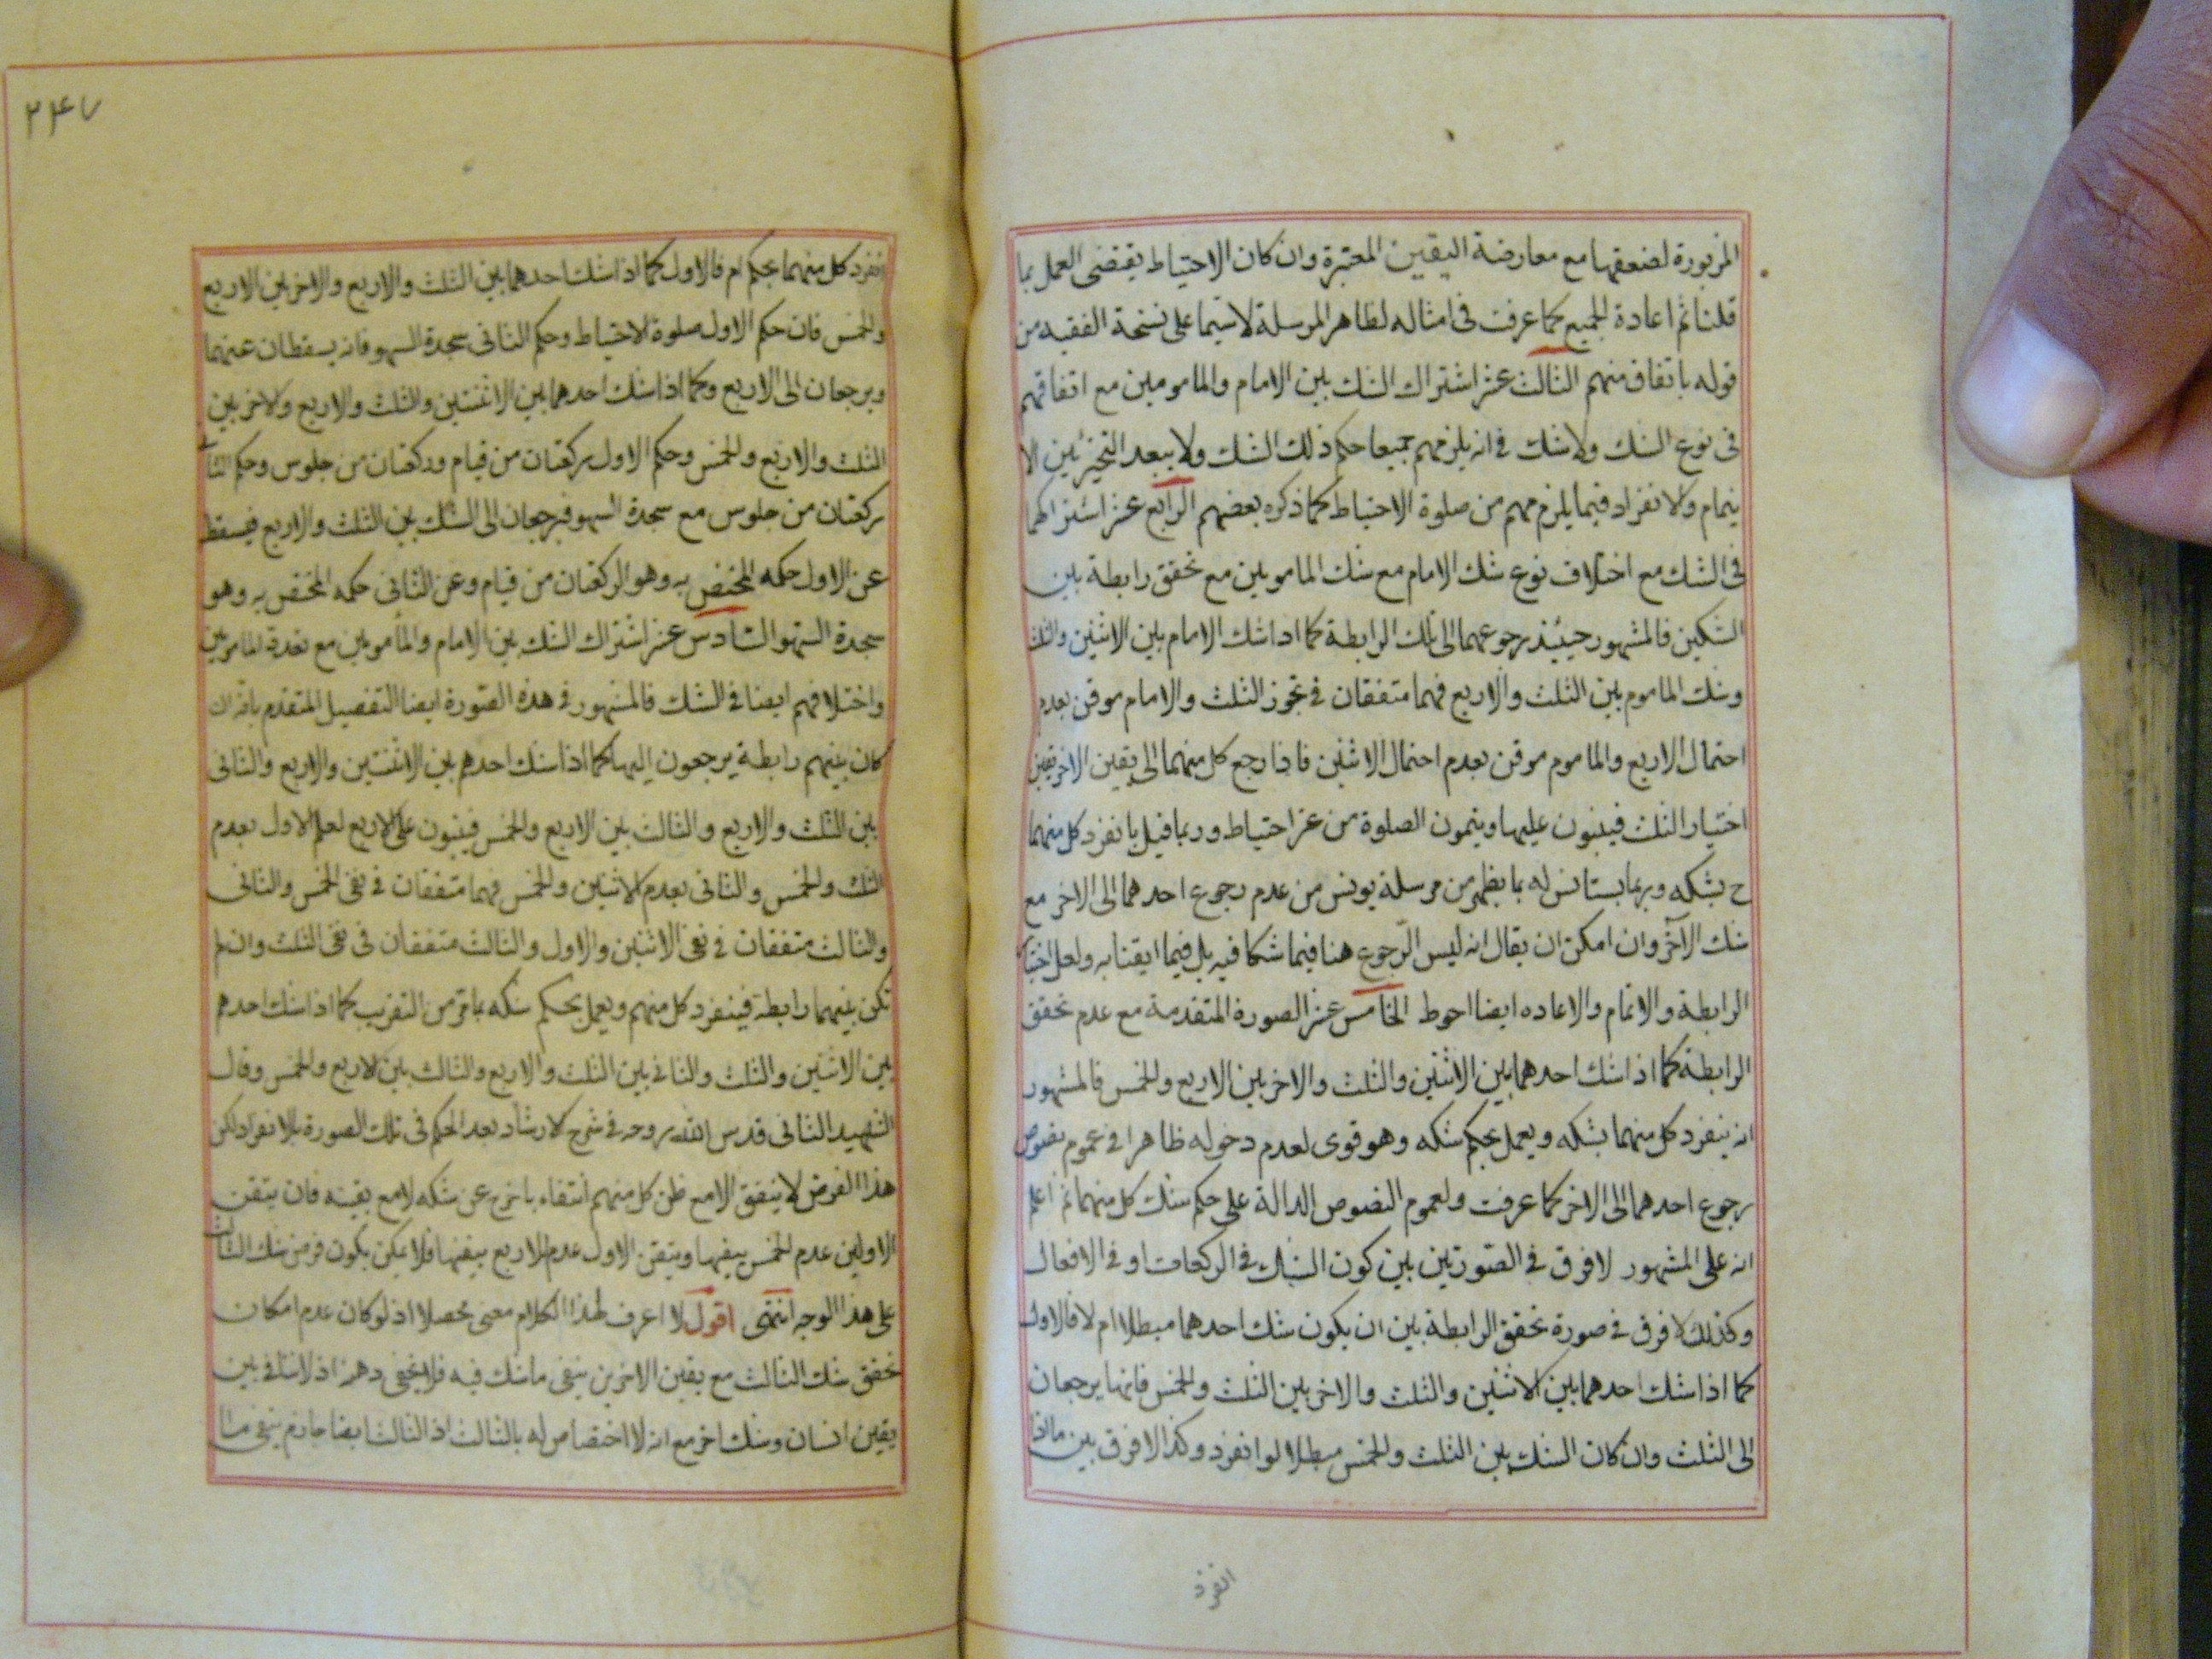 المزبورة لضعفها مع معارضة اليقين المعتبرة وان كان الاحتياط يقتضى العمل بما
قلنا ثم اعادة الجميع كما عرفت فى امثاله لظاهر المرسلة لاسيما على نسخة الفقيه من
قوله باتفاق منهم الثالث عشر اشتراك الشك بين الامام والمامومين مع اتفاقهم
فى نوع الشك ولا شك فى انه يلزمهم جميعا حكم ذلك الشك ولا يبعد التخيير بين الا
يتمام والانفراد فيما يلزمهم من صلوة الاحتياط كما ذكره بعضهم الرابع عشر اشتراكهما
فى الشك مع اختلاف نوع شك الامام مع شك المامومين مع تحقق رابطة بين
الشكين فالمشهور حينئذ رجوعهما الى تلك الرابطة كما اذا شك الامام بين الاثنين والثلث
وشك الماموم بين الثلث والاربع فهما متفقان فى تجوز الثلث والامام موقن بعدم
احتمال الاربع والماموم موقن بعدم احتمال الاثنين فاذا رجع كل منهما الى يقين الاخر تعين
اختيار الثلث فيبنون عليها ويتمون الصلوة من غير احتياط وربما قيل بانفرد كل منهما
ح بشكه وربما يستانس له بما يظهر من مرسلة يونس من عدم رجوع احدهما الى الاخر مع
شك الآخر وان امكن ان يقال انه ليس الرجوع هنا فيما شكا فيه بل فيما ايقنا به ولعل اختيار
الرابطة والاتمام والاعاده ايضا احوط الخامس عشر الصورة المتقدمة مع عدم تحقق
الرابطة كما اذا شك احدهما بين الاثنين والثلث والاخر بين الاربع والخمس فالمشهور
انه ينفرد كل منهما بشكه ويعمل بحكم شكه وهو قوى لعدم دخوله ظاهرا فى عموم نصوص
رجوع احدهما الى الاخر كما عرفت ولعموم النصوص الدالة على حكم شك كل منهما ثم اعلم
انه على المشهور لا فرق فى الصورتين بين كون الشك فى الركعات او فى الافعال
وكذلك لا فرق فى صورة تحقق الرابطة بين ان يكون شك احدهما مبطلا ام لا فالاول
كما اذا شك احدهما بين الاثنين والثلث والاخر بين الثلث والخمس فانهما يرجعان
الى الثلث وان كان الشك بين الثلث والخمس مبطلا لو انفرد وكذا لا فرق بين ما اذا
انفرد
٢٤٧
انفرد كل منهما بحكم ام فالاول كما اذا شك احدهما بين الثلث والاربع والاخر بين الاربع
والخمس فان حكم الاول صلوة الاحتياط وحكم الثانى سجدة السهو فانه يسقطان عنهما
ويرجعان الى الاربع وكما اذا شك احدهما بين الاثنتين والثلث والاربع والاخر بين
الثلث والاربع والخمس وحكم الاول ركعتان من قيام وركعتان من جلوس وحكم الثانى
ركعتان من جلوس مع سجدة السهو فيرجعان الى الشك بين الثلث والاربع فيسقط
عن الاول حكمه المختص به وهو الركعتان من قيام وعن الثانى حكمه المختص به وهو
سجدة السهو السادس عشر اشتراك الشك بين الامام والمامومين مع تعدد المامومين
واختلافهم ايضا فى الشك فالمشهور فى هذه الصورة ايضا التفصيل المتقدم بانه ان
كان بينهم رابطة يرجعون اليها كما اذا شك احدهم بين الاثنتين والاربع والثانى
بين الثلث والاربع والثالث بين الاربع والخمس فيبنون على الاربع لعلم الاول بعدم
الثلث والخمس والثانى بعدم الاثنين والخمس فهما متفقان فى نفى الخمس والثانى
والثالث متفقان فى نفى الاثنين والاول والثالث متفقان فى نفى الثلث وان لم
تكن بينهما رابطة فينفرد كل منهم ويعمل بحكم شكه بما مر من التقريب كما اذا شك احدهم
بين الاثنين والثلث والثانى بين الثلث والاربع والثالث بين الاربع والخمس وقال
الشهيد الثانى قدس الله روحه فى شرح الارشاد بعد الحكم فى تلك الصورة بالانفراد لكن
هذا الفرض لا يتفق الا مع ظن كل منهم انتفاء ما خرج عن شكه لا مع يقينه فان يتقن
الاولين عدم الخمس ينفيها ويتقن الاول عدم الاربع ينفيها فلا يمكن يكون فرض شك الثالث
على هذا الوجه انتهى اقول لا اعرف لهذا الكلام معنى محصلا اذ لو كان عدم امكان
تحقق شك الثالث مع يقين الاخرين بنفى ما شك فيه فلا يخفى وهنه اذ لا تنافى بين
يقين انسان وشك اخر مع انه لا اختصاص له بالثالث اذ الثالث ايضا جازم بنفى ما